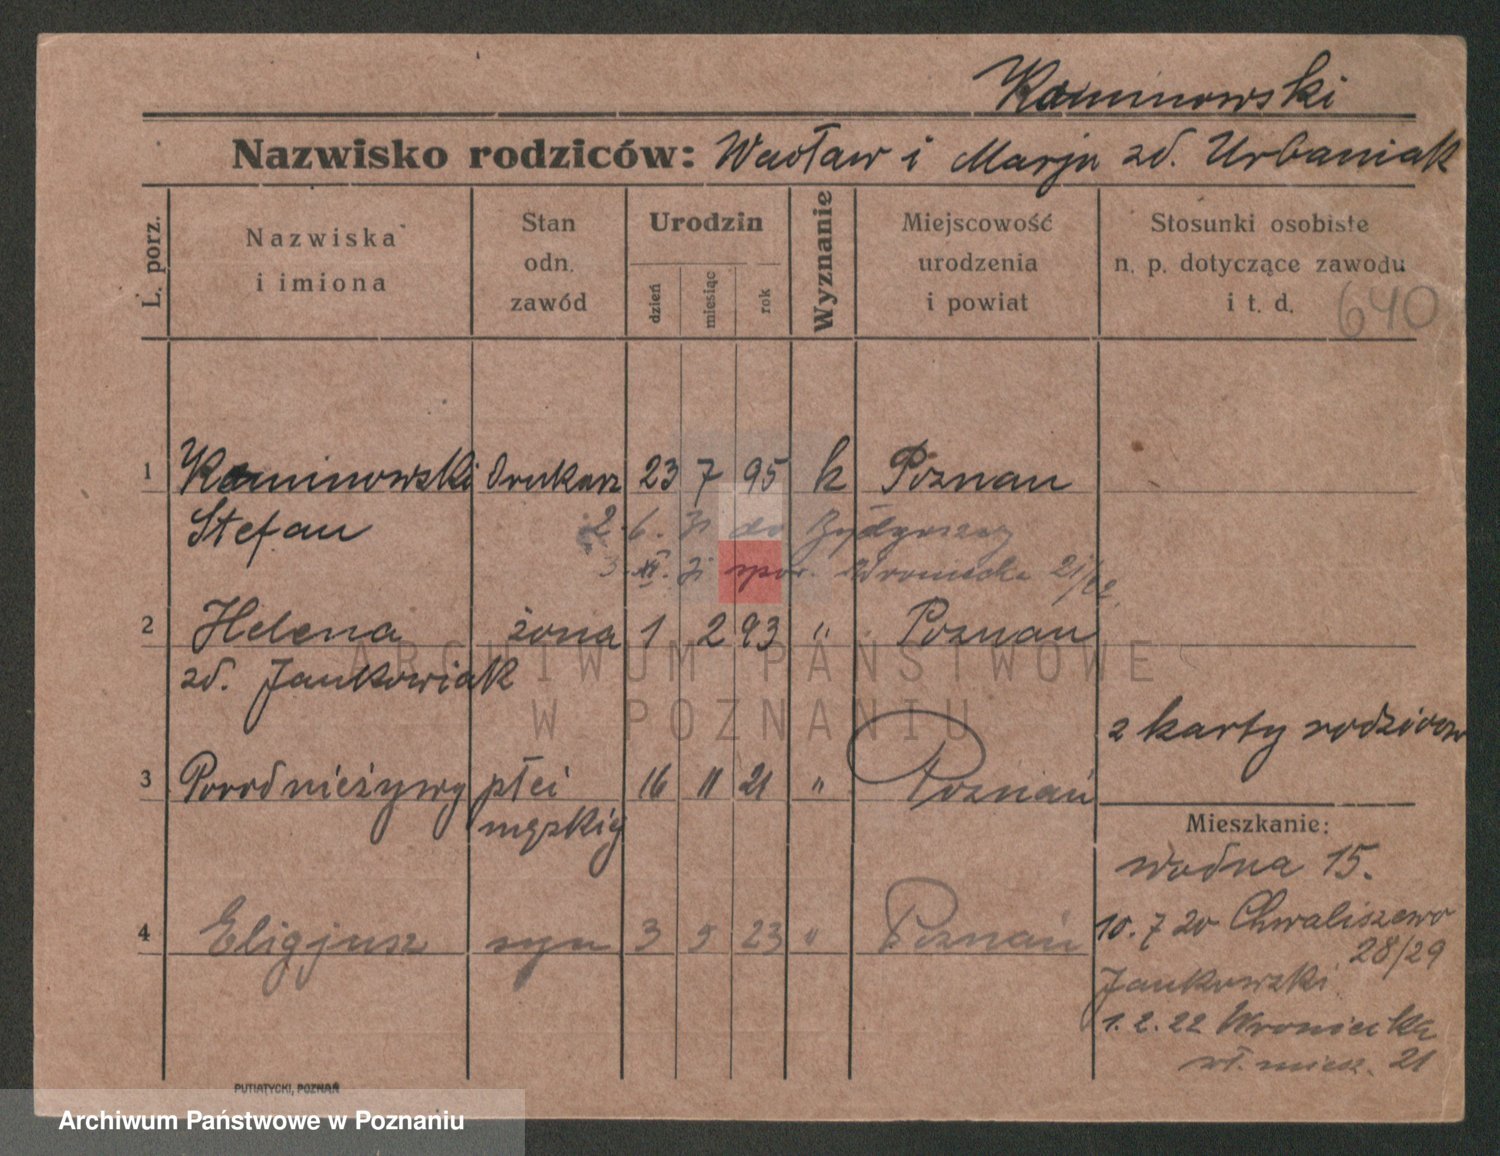 Kaminowski
Nazwisko rodziców: Wacław i Marja zd. Urbaniak
L. porz.
Nazwiska i imiona
Stan odn. zawód
Urodzin
dzień
miesiąc
rok
Wyznanie
Miejscowość urodzenia i powiat
Stosunki osobiste n. p. dotyczące zawodu i t. d.
640
1 Kaminowski drukarz 23 7 95 k Poznań
Stefan
2. 6. 31 do Bydgoszczy
3. XI. 31 spow. Wroniecka 21/22.
2 Helena żona 1 2 93 " Poznań
zd. Jankowiak
z karty rodziców
3 Poród nieżywy płci 16 11 21 " Poznań
męskiej
Mieszkanie:
Wodna 15.
4 Eligjusz syn 3 5 23 " Poznań
10. 7 20 Chwaliszewo
28/29
Jankowski
1. 2. 22 Wroniecka
wł. miesz. 21
PUTIATYCKI, POZNAŃ
ARCHIWUM PAŃSTWOWE
W POZNANIU
Archiwum Państwowe w Poznaniu